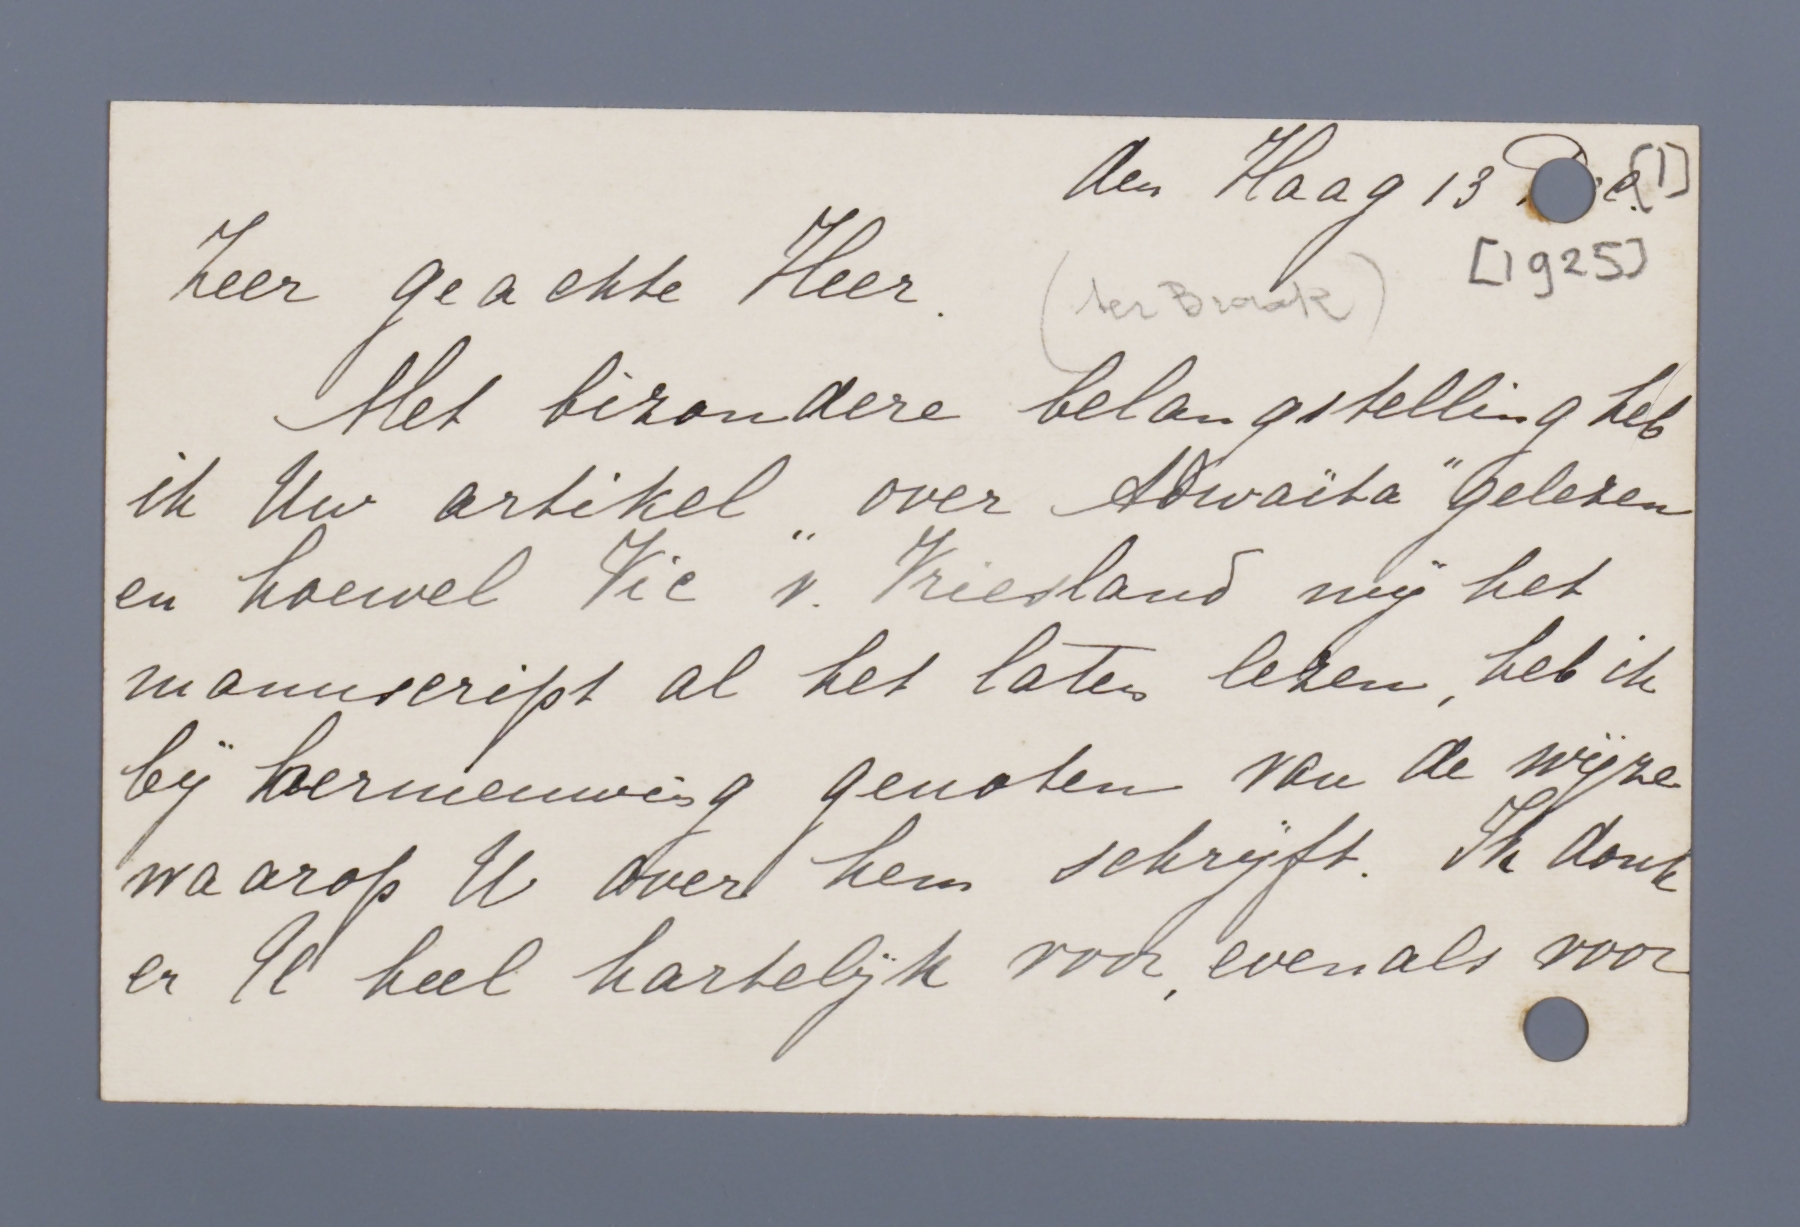 den Haag 13 Dec. [1]
[1925]
Zeer geachte Heer.
(ter Braak)
Met bizondere belangstelling heb
ik Uw artikel „over Adwaïta" gelezen
en hoewel Vic v. Vriesland mij het
manuscript al het laten lezen, heb ik
bij hernieuwing genoten van de wijze
waarop U over hem schrijft. Ik dank
er U heel hartelijk voor, evenals voor